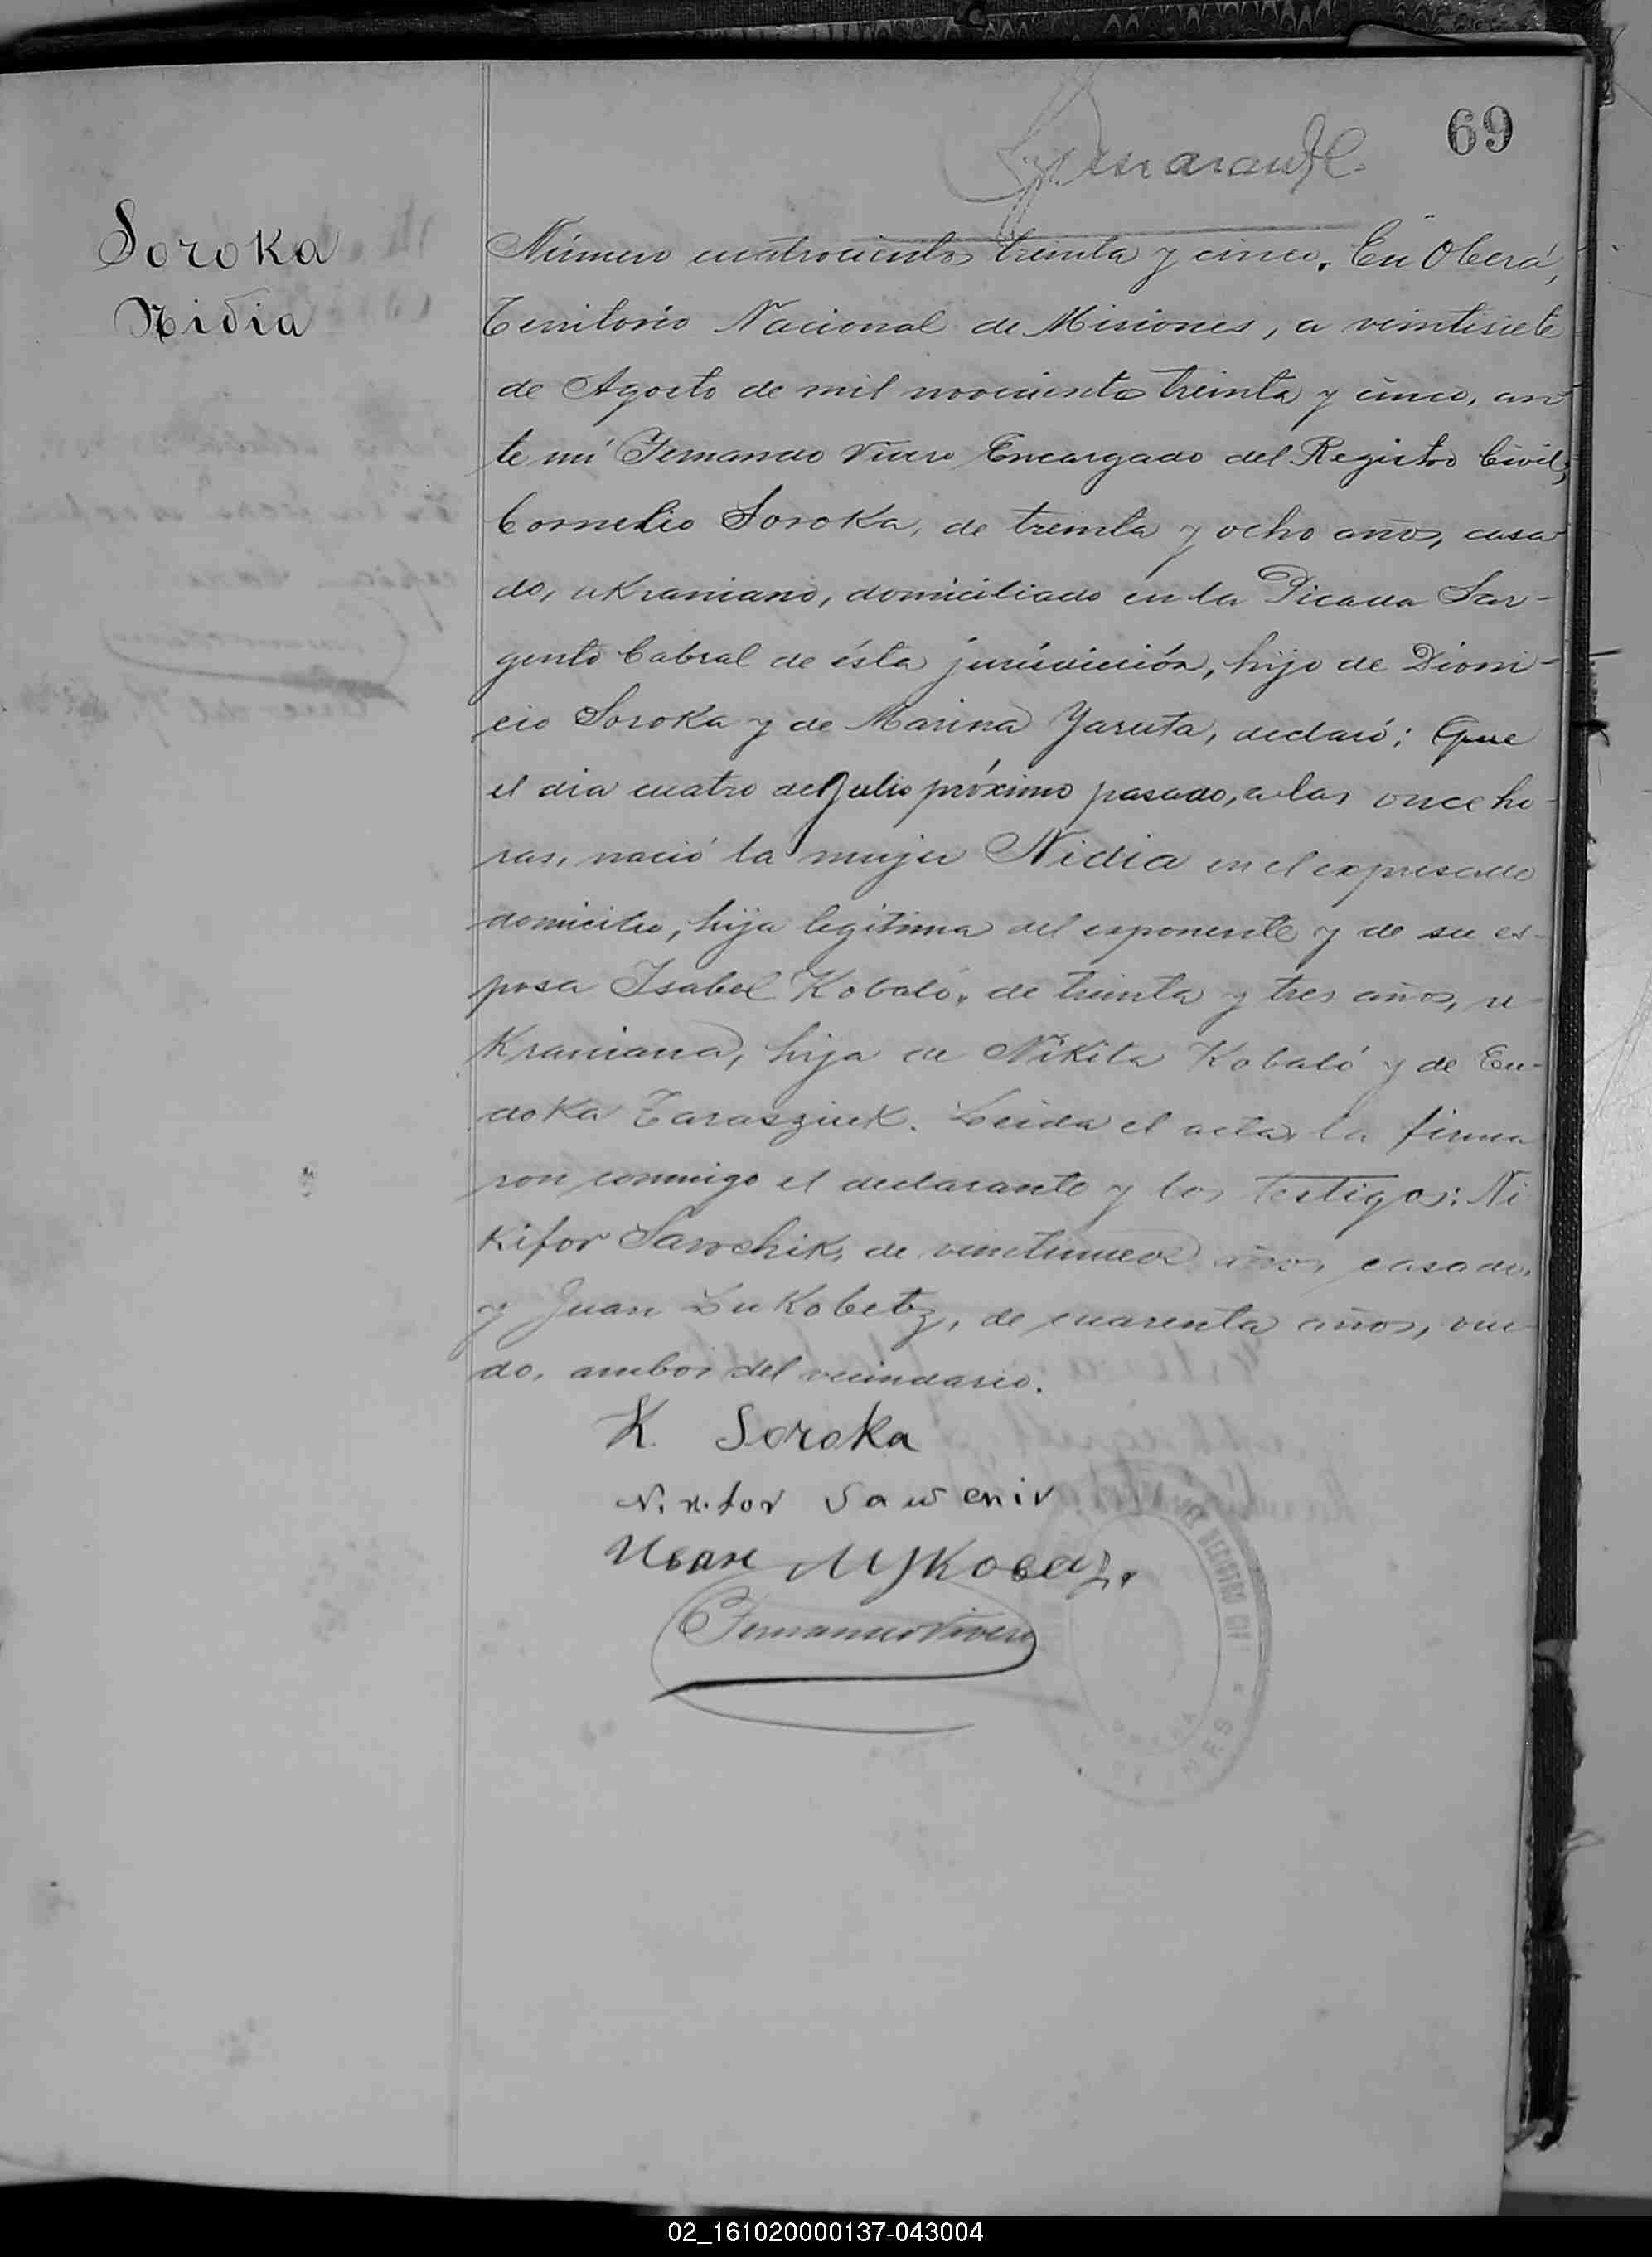 69
Soroka
Nidia
Número cuatrocientos treinta y cinco. En Oberá,
Territorio Nacional de Misiones, a veintisiete
de Agosto de mil novecientos treinta y cinco, an
te mí Fernando Vivero Encargado del Registro Civil,
Cornelio Soroka, de treinta y ocho años, casa
do, uKraniano, domiciliado en la Picada Sar-
gento Cabral de ésta jurisdicción, hijo de Dioni-
cio Soroka y de Marina Yaruta, declaró: Que
el día cuatro de Julio próximo pasado, a las once ho-
ras, nació la mujer Nidia en el expresado
domicilio, hija legítima del exponente y de su es-
posa Isabel Kobaló, de treinta y tres años, u-
Kraniana, hija de Nikita Kobaló y de Eu-
doKa Tarasziuk. Leída el acta, la firma
ron conmigo el declarante y los testigos: Ni
kifor Sawchik, de veintinueve años, casado,
y Juan LuKobetz, de cuarenta años, viu-
do, ambos del vecindario.
K. Soroka
Иван Луковец.
Fernando Vivero
02_161020000137-043004